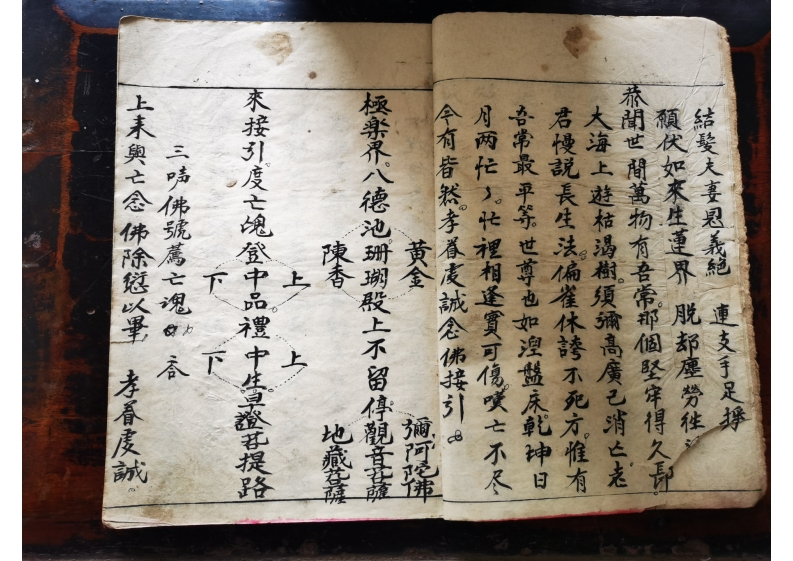 結髮夫妻恩義絕 連支手足擗
願伏如來生蓮界 脱却塵勞徃
恭聞世間萬物有吾常那個堅牢得久長
大海上遊枯渴樹須彌高廣已消亡老
君慢説長生法偏雀休誇不死方惟有
吾常最平等世尊也如涅盤床乾坤日
月两忙〻忙裡相逢實可傷嘆亡不尽
今有皆然孝眷虔誠念佛接引
黃金 彌阿陀佛
極楽界八德池珊瑚殿上不留停觀音菩薩
陳香 地藏菩薩
上 上
來接引度亡魂登中品禮中生早證菩提路
下 下
三唪佛號薦亡魂 答
上来與亡念佛除愆以畢 孝眷虔誠